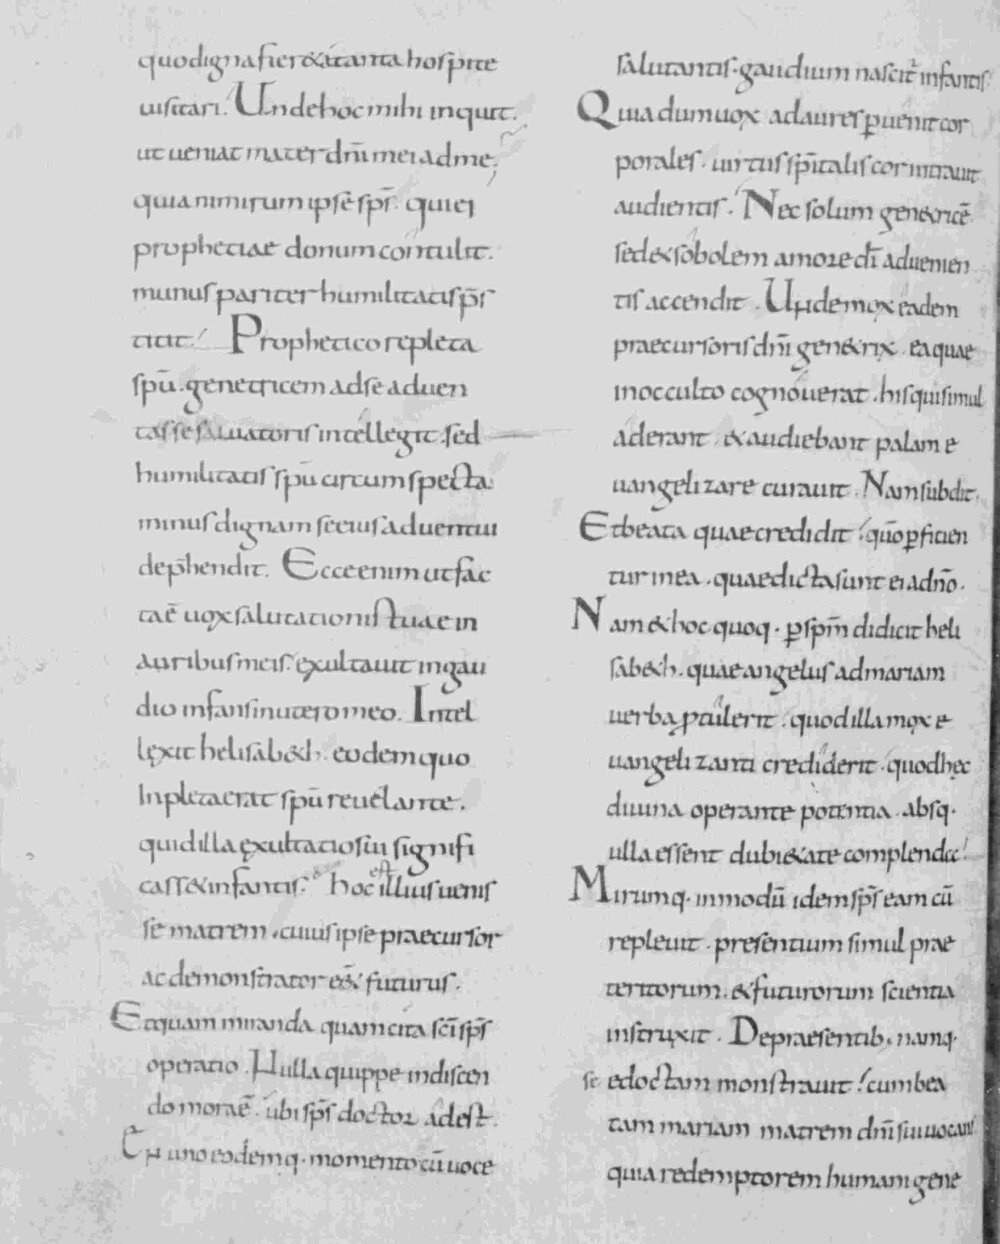 quo digna fier& a tanta hospite
uisitari. Unde hoc mihi inquit.
ut ueniat mater dn̄i mei ad me;
quia nimirum ipsē sp̄s. qui ei
prophetiae donum contulit.
munus pariter humilitatis p̄s
titit. Prophetico repleta
spū. genetricem ad se aduen
tasse saluatoris intellegit. sed
humilitatis spū circumspecta.
minus dignam se eius aduentui
dep̄hendit. Ecce enim ut fac
ta ē uox salutationis tuae in
auribus meis. exultauit in gau
dio infans in utero meo. Intel
lexit helisab&h. eodem quo
Inpleta erat spū reuelante.
quid illa exultatio sui signifi
cass& infantis. hoc est illius uenis
se matrem. cuius ipse praecursor
ac demonstrator ess& futurus.
Et quam miranda quam cita sc̄i sp̄s
operatio. Nulla quippe in discen
do mora ē. ubi sp̄s doctor adest.
En uno eodemq. momento cū uoce
salutantis. gaudium nascit̄ infantis.
Quia dum uox ad aures p̱uenit cor
porales. uirtus sp̄italis cor intrauit
audientis. Nec solum gen&ricē
sed & sobolem amore dn̄i aduenien
tis accendit. Unde mox eadem
praecursoris dn̄i gen&rix. ea quae
in occulto cognouerat. his qui simul
aderant & audiebant palam e
uangelizare curauit. Nam subdit.
Et beata quae credidit quō p̱ficien
tur in ea. quae dicta sunt ei a dn̄o.
Nam & hoc quoq. p̱ sp̄m didicit heli
sab&h. quae angelus ad mariam
uerba p̱tulerit. quod illa mox e
uangelizanti crediderit. quod hęc
diuina operante potentia. absq.
ulla essent dubi&ate complenda.
Mirumq. in modū idem sp̄s eam cū
repleuit. presentium simul prae
teritorum. & futurorum scientia
instruxit. De praesentib. namq.
se edoctam monstrauit. cum bea
tam mariam matrem dn̄i sui uocauit
quia redemptorem humani gene